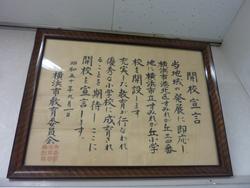 開校宣言
当地域の発展に即応し
横浜市港北区すみれが丘三四番
地に横浜市立すみれが丘小学
校を開設します
充実した教育が行なわれ
優秀な小学校に成育され
ることを期待しここに
開校を宣言します
昭和五十年九月一日
横浜市教育委員会